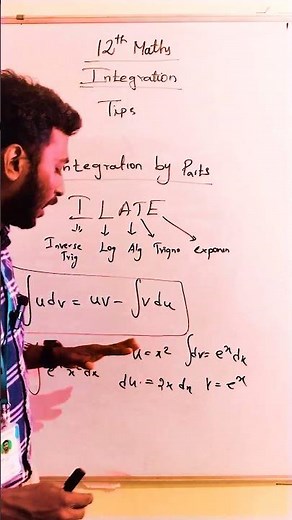 12th Maths
Integration
Tips
Integration by Parts
I L A T E
Inverse Trig Log Alg Trigno exponen
∫udv = uv - ∫v du
u = x² ∫dv = eˣ dx
eˣ x² dx
du = 2x dx v = eˣ